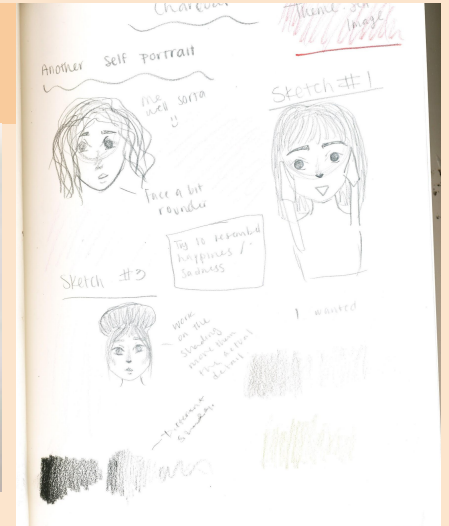 Charcoal
Theme - Self
Image
Another self portrait
me
well sorta
:)
Sketch #1
face a bit
rounder
Try to resembel
happines /
sadness
Sketch #3
work
on the
shading
more than
the actual
detail
I wanted
Different